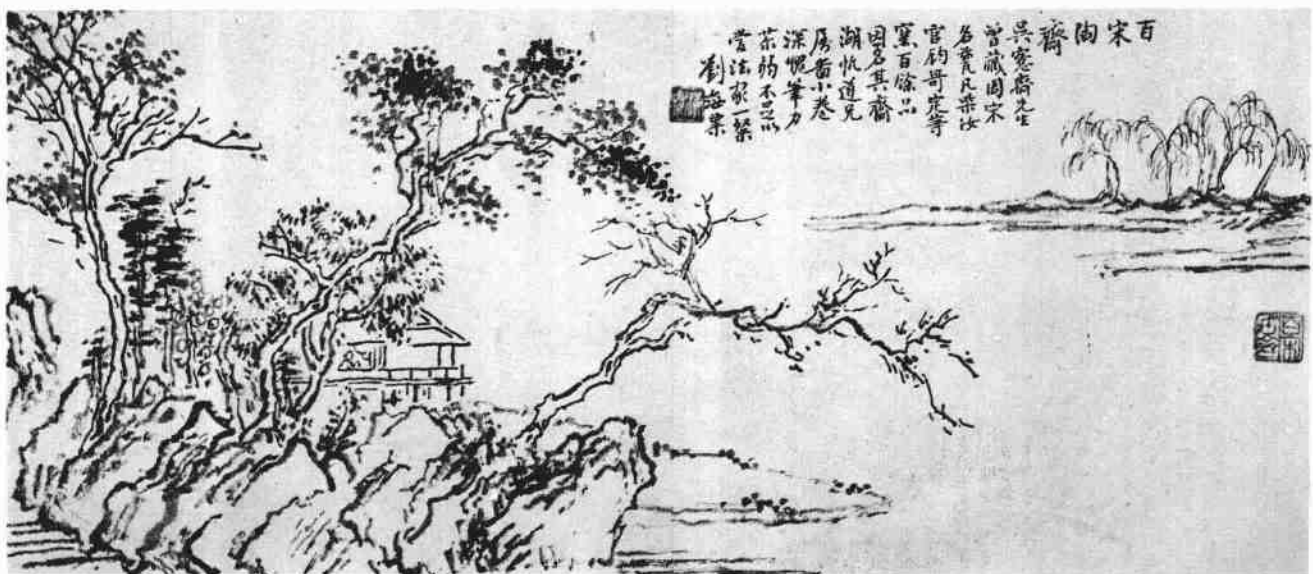 百宋陶齋
吳愙齋先生
曾藏周宋
名瓷凡柴汝
官鈞哥定等
窯百餘品
因名其齋
湖帆道兄
屬啚小卷
深愧筆力
苶弱不足以
當法家一粲
劉海粟